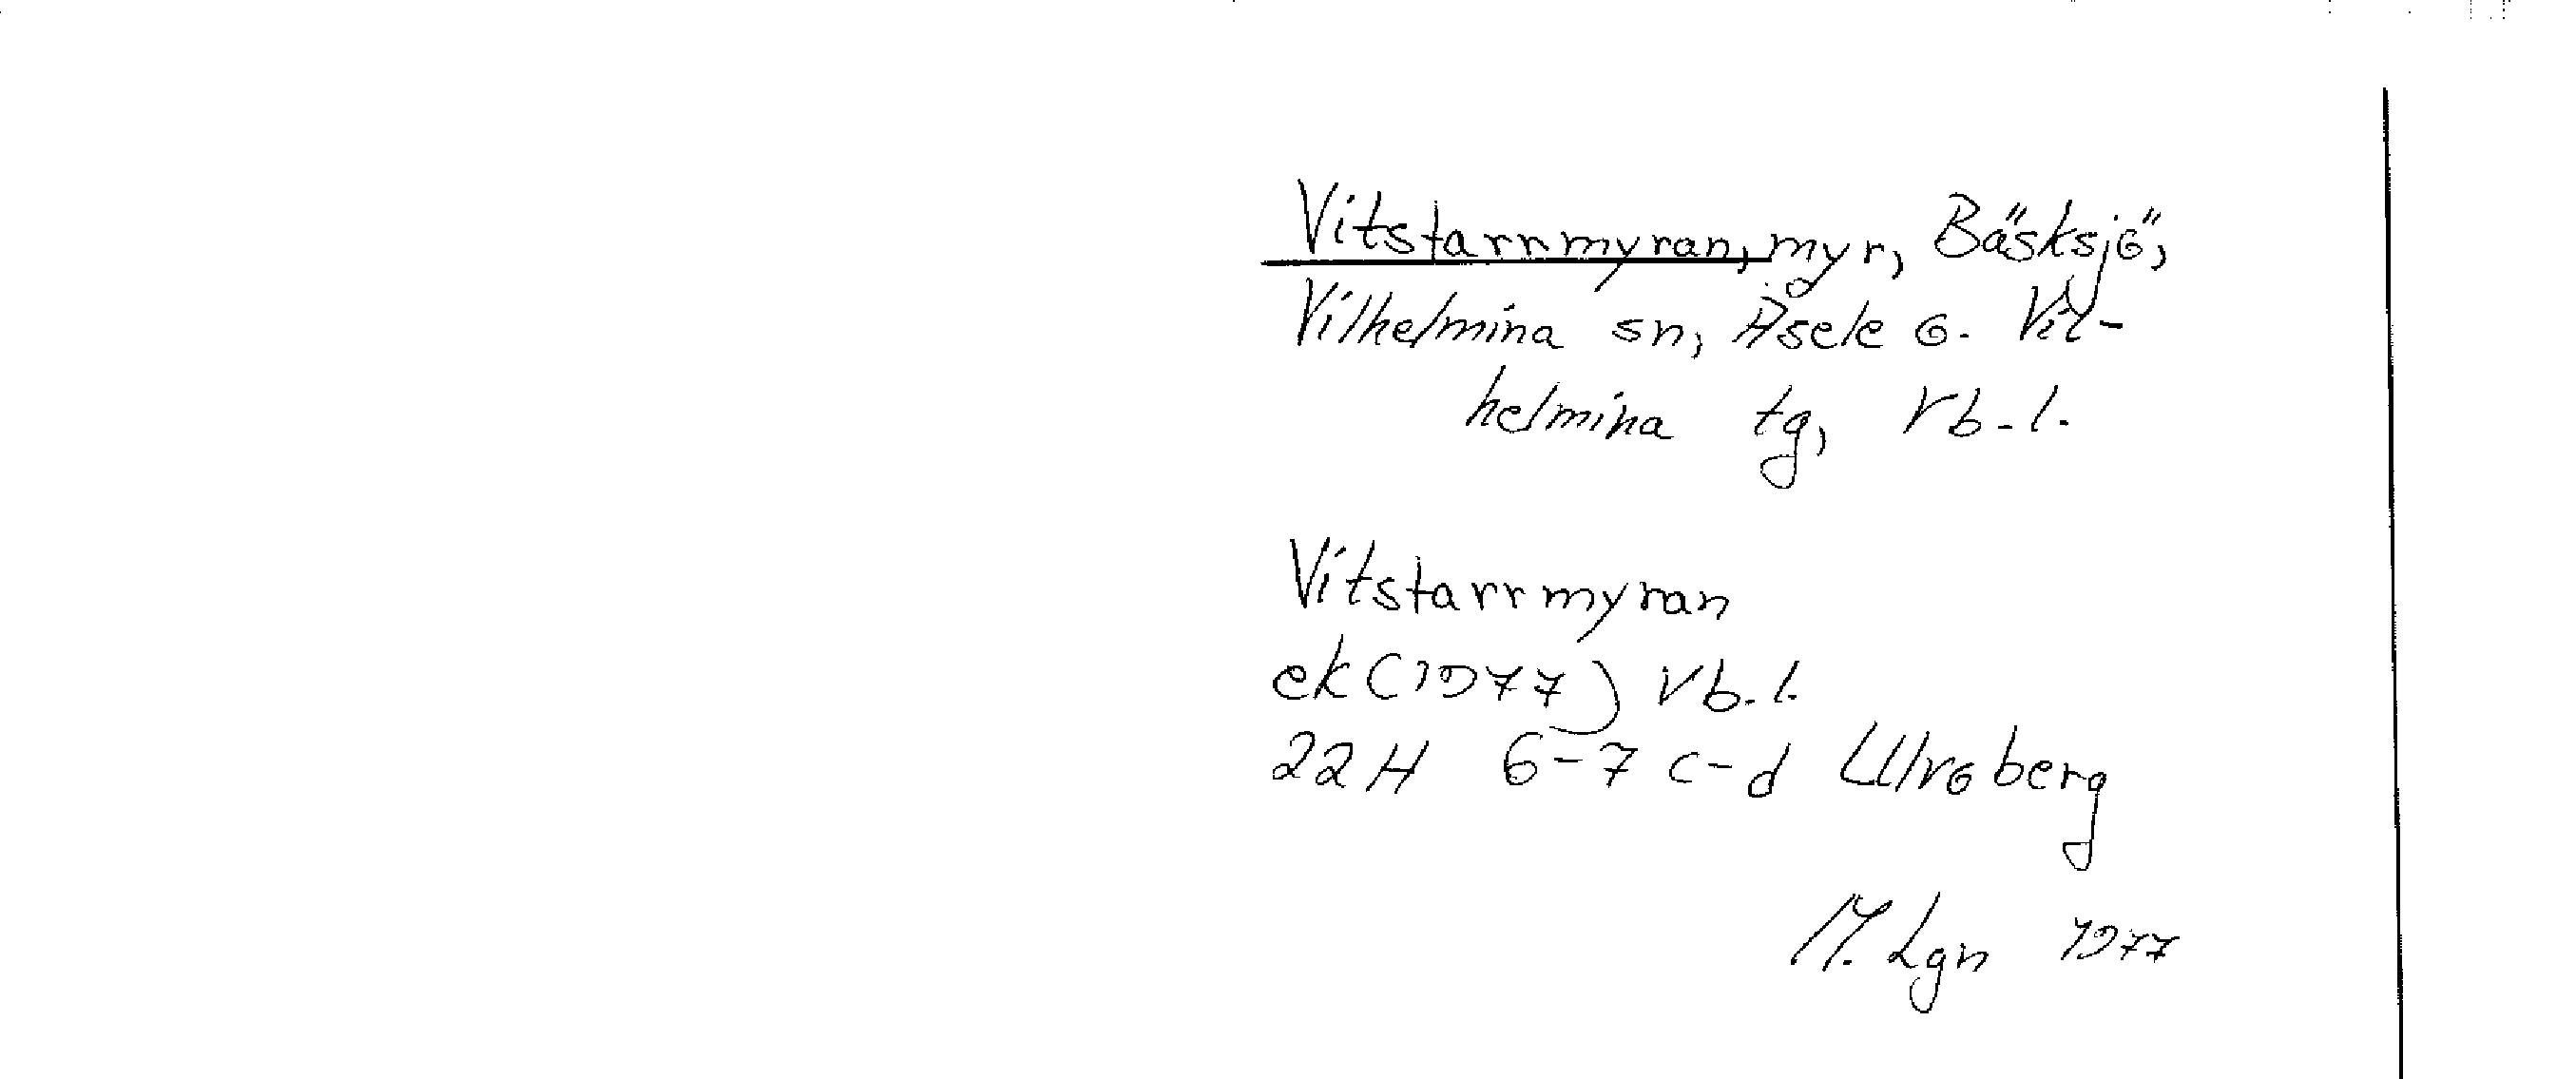 Vitstarrmyran, myr, Bäsksjö,
Vilhelmina sn, Åsele o. Vil-
helmina tg, Vb. l.
Vitstarrmyran
ek (1977) Vb. l.
22 H 6-7 c-d Ulvoberg
M. Lgn 1977